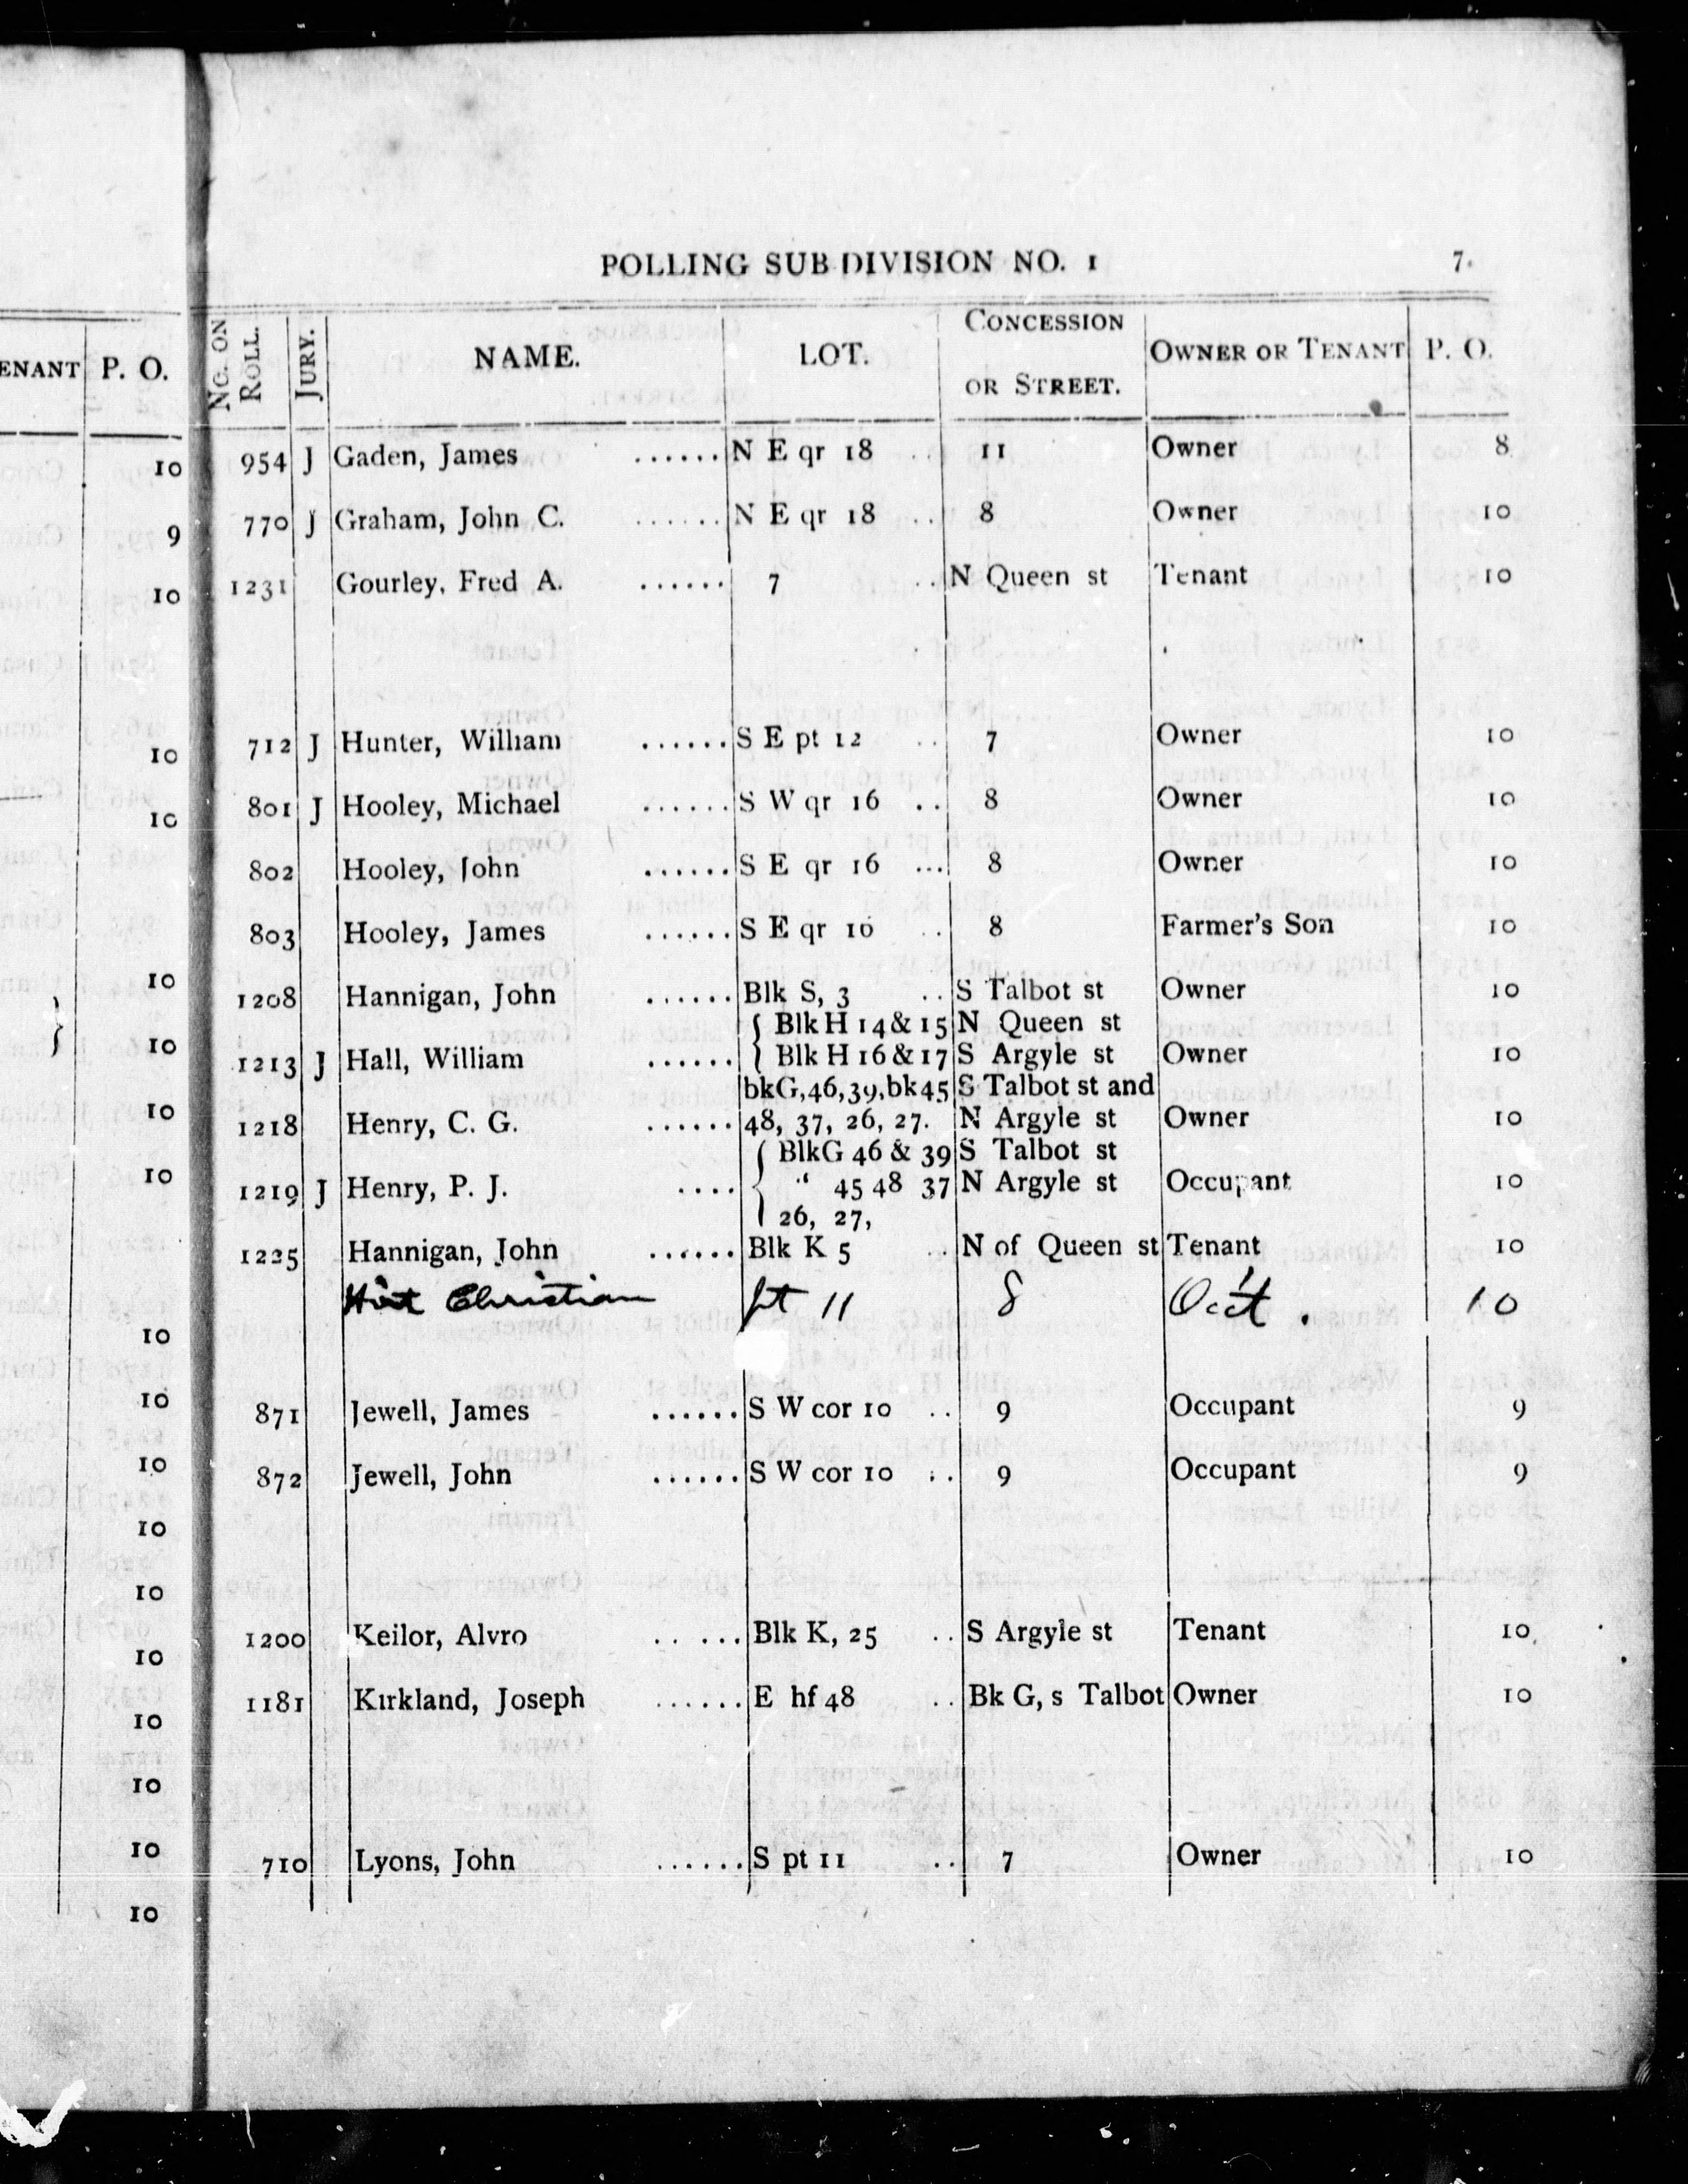 POLLING SUB DIVISION NO. 1 7.
ENANT P. O.
NO. ON ROLL. JURY. NAME. LOT. CONCESSION OR STREET. OWNER OR TENANT P. O.
10 954 J Gaden, James ...... N E qr 18 .. 11 Owner 8
9 770 J Graham, John C. ...... N E qr 18 .. 8 Owner 10
10 1231 Gourley, Fred A. ...... 7 .. N Queen st Tenant 10
10 712 J Hunter, William ...... S E pt 12 .. 7 Owner 10
10 801 J Hooley, Michael ...... S W qr 16 .. 8 Owner 10
802 Hooley, John ...... S E qr 16 ... 8 Owner 10
803 Hooley, James ...... S E qr 16 .. 8 Farmer's Son 10
10 1208 Hannigan, John ...... Blk S, 3 .. S Talbot st Owner 10
{ Blk H 14 & 15 N Queen st
10 1213 J Hall, William ...... Blk H 16 & 17 S Argyle st Owner 10
bkG,46,39,bk45 S Talbot st and
10 1218 Henry, C. G. ...... 48, 37, 26, 27. N Argyle st Owner 10
{ BlkG 46 & 39 S Talbot st
10 1219 J Henry, P. J. .... " 45 48 37 N Argyle st Occupant 10
26, 27,
1225 Hannigan, John ...... Blk K 5 .. N of Queen st Tenant 10
Christian pt 11 8 Occ't. 10
10
10 871 Jewell, James ...... S W cor 10 .. 9 Occupant 9
10 872 Jewell, John ...... S W cor 10 .. 9 Occupant 9
10
10
10 1200 Keilor, Alvro ...... Blk K, 25 .. S Argyle st Tenant 10
10 1181 Kirkland, Joseph ...... E hf 48 .. Bk G, s Talbot Owner 10
10
10 710 Lyons, John ...... S pt 11 .. 7 Owner 10
10